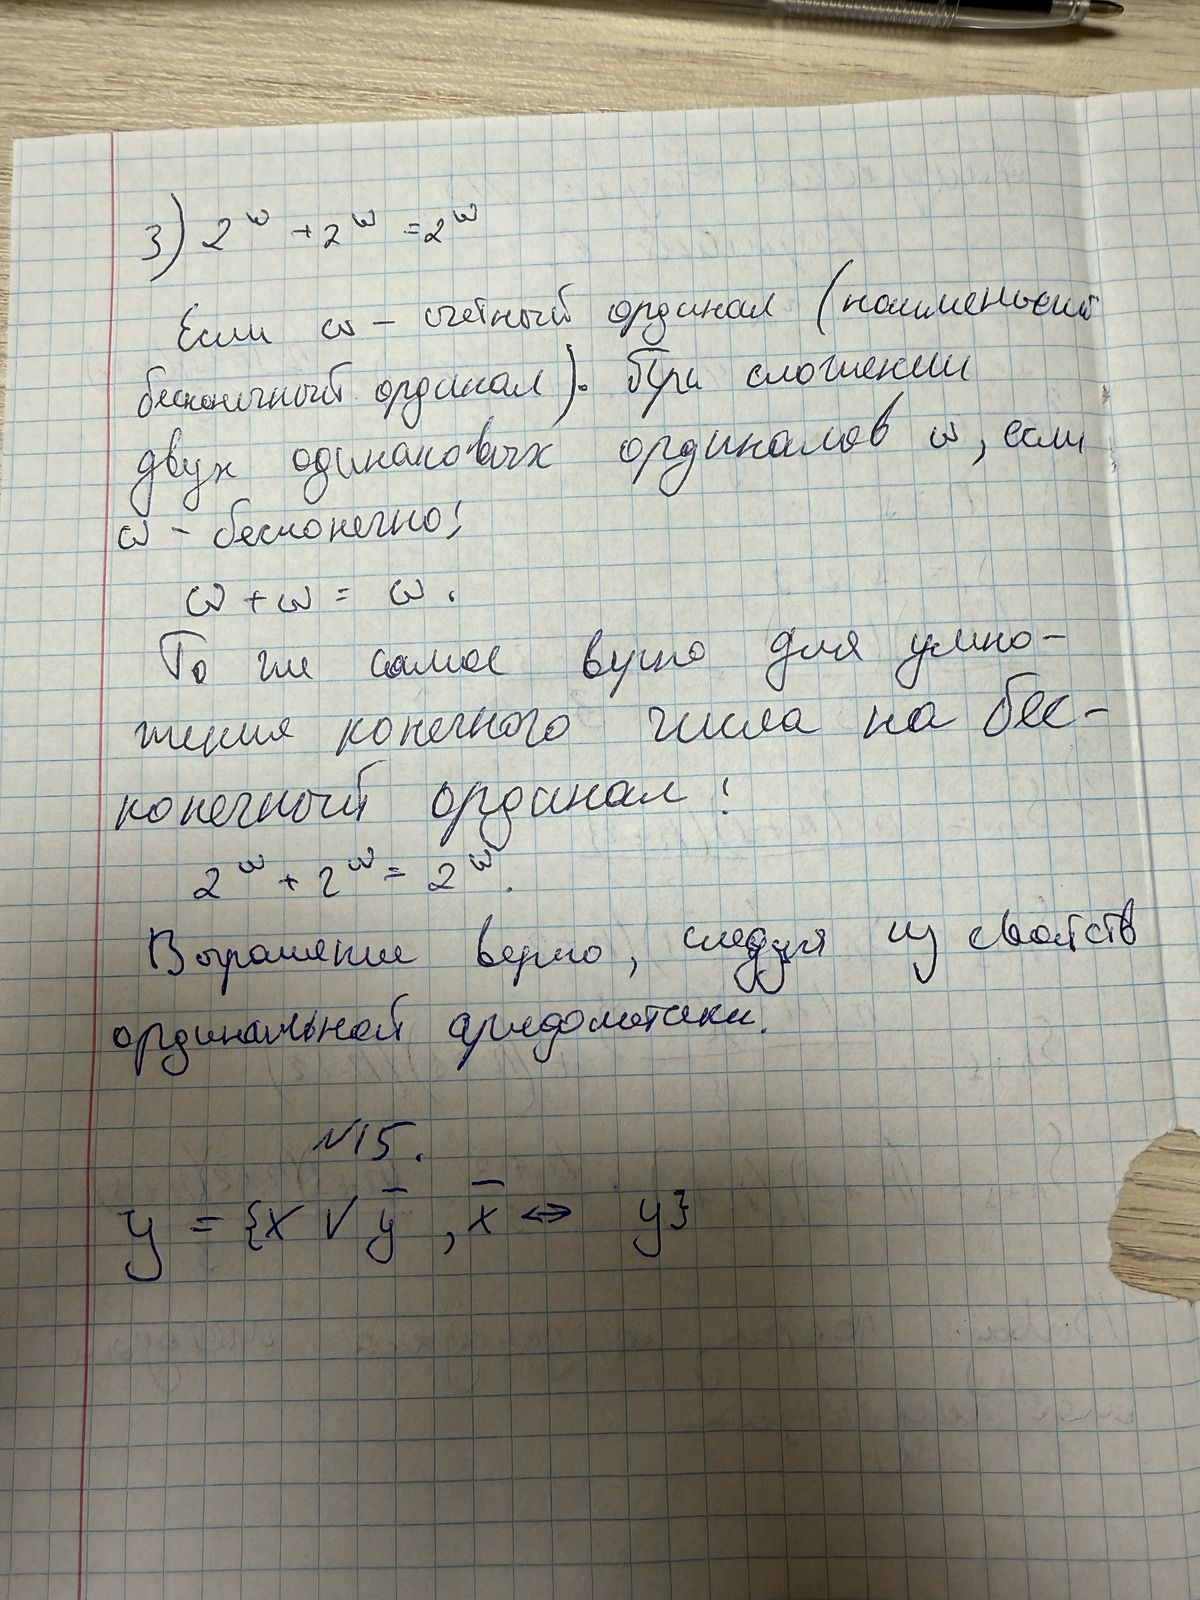 3) 2^ω + 2^ω = 2^ω
Если ω – счётный ординал (наименьший
бесконечный ординал). При сложении
двух одинаковых ординалов ω, если
ω – бесконечно:
ω + ω = ω.
То же самое верно для умно-
жения конечного числа на бес-
конечный ординал:
2^ω + 2^ω = 2^ω.
Выражение верно, следуя из свойств
ординальной арифметики.
№15.
y = {x ∨ y̅ , x̅ ⇔ y}